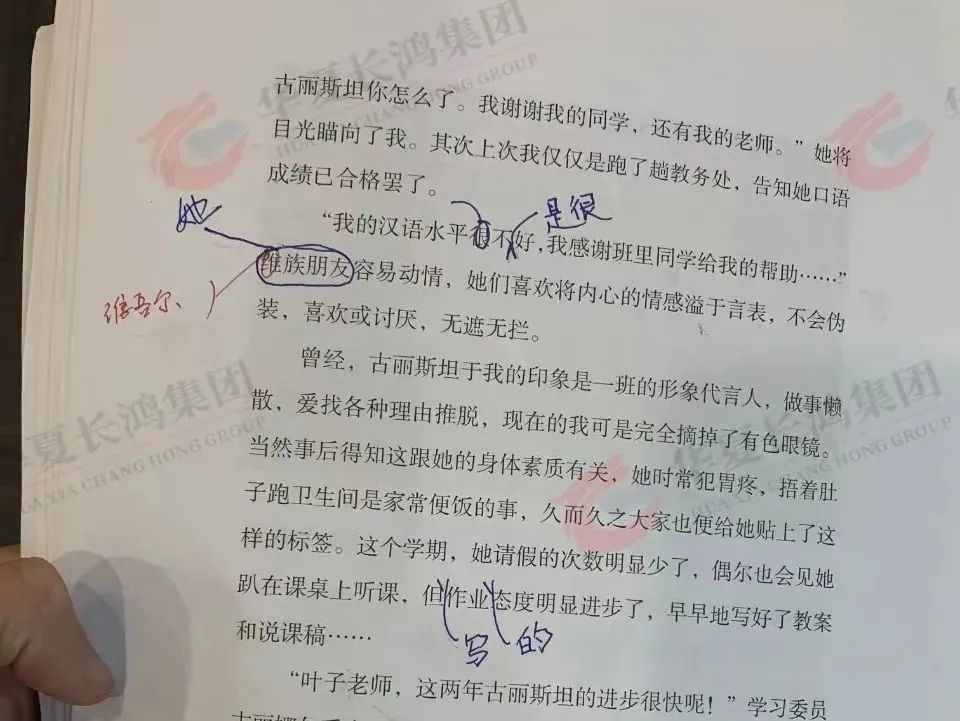 华夏长鸿集团
HUA XIA CHANG HONG GROUP
古丽斯坦你怎么了。我谢谢我的同学，还有我的老师。”她将
目光瞄向了我。其次上次我仅仅是跑了趟教务处，告知她口语
成绩已合格罢了。
她
是很
“我的汉语水平很不好，我感谢班里同学给我的帮助……”
维族朋友容易动情，她们喜欢将内心的情感溢于言表，不会伪
维吾尔
装，喜欢或讨厌，无遮无拦。
曾经，古丽斯坦于我的印象是一班的形象代言人，做事懒
散，爱找各种理由推脱，现在的我可是完全摘掉了有色眼镜。
华夏长鸿集团
HUA XIA CHANG HONG GROUP
夏长鸿集团
HUA XIA CHANG HONG GROUP
当然事后得知这跟她的身体素质有关，她时常犯胃疼，捂着肚
子跑卫生间是家常便饭的事，久而久之大家也便给她贴上了这
样的标签。这个学期，她请假的次数明显少了，偶尔也会见她
趴在课桌上听课，但作业态度明显进步了，早早地写好了教案
写 的
和说课稿……
“叶子老师，这两年古丽斯坦的进步很快呢！”学习委员